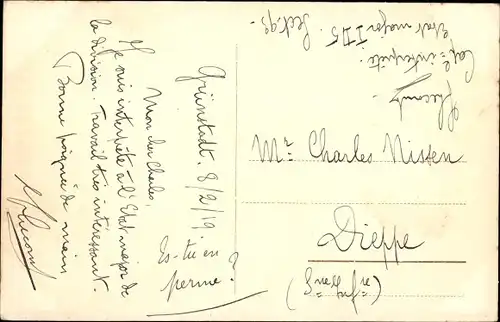 Grünstadt. 8/2/19
Mon cher Charles,
Je suis interprète à l'Etat major de
la division. Travail très intéressant.
Bonne poignée de main
Es-tu en
perme?
Mr Charles Nissen
Dieppe
(Sne Infre)
interprète.
Etat major I.D.5. Sect.